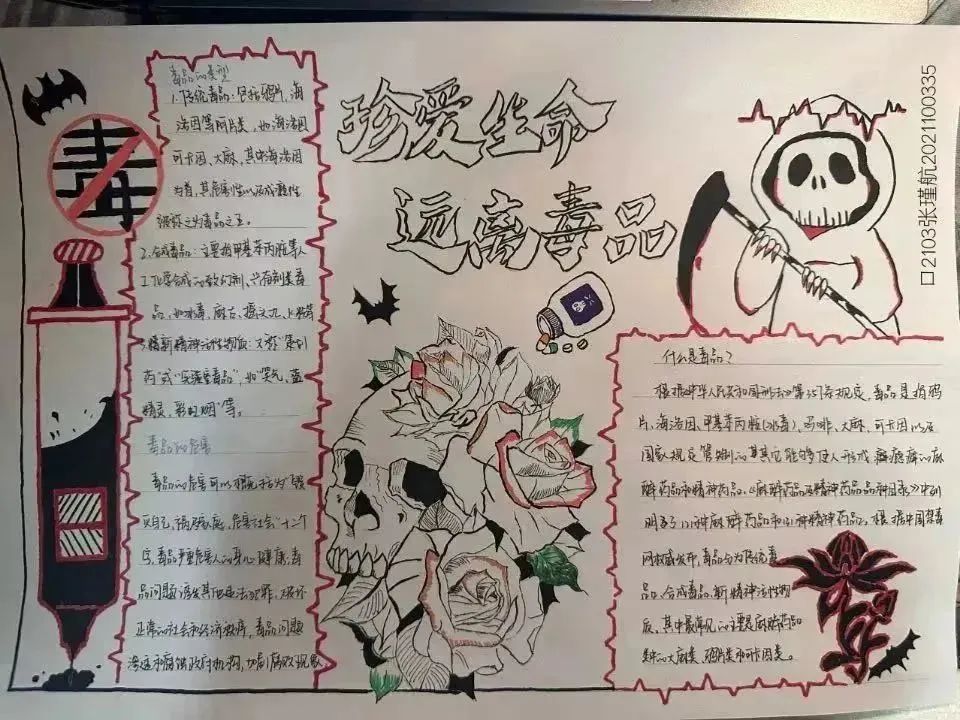 珍爱生命
远离毒品
毒
毒品的类型
1.传统毒品：包括鸦片、海
洛因等阿片类，如海洛因
可卡因、大麻，其中海洛因
为首，其危害性以及成瘾性
被称之为毒品之王。
2.合成毒品：主要指甲基苯丙胺等人
工化学合成的致幻剂、兴奋剂类毒
品，如冰毒、麻古、摇头丸、K粉等
3.新精神活性物质：又称“策划
药”或“实验室毒品”，如“笑气，蓝
精灵，彩虹烟”等。
毒品的危害
毒品的危害可以概括为“毁
灭自己，祸及家庭，危害社会”十二个
字，毒品严重危害人的身心健康，毒
品问题诱发其他违法犯罪，破坏
正常的社会和经济秩序，毒品问题
渗透和腐蚀政府机构，加剧腐败现象
什么是毒品？
根据中华人民共和国刑法第357条规定，毒品是指鸦
片、海洛因、甲基苯丙胺(冰毒)、吗啡、大麻、可卡因以及
国家规定管制的其其它能够使人形成瘾癖的麻
醉药品和精神药品。《麻醉药品及精神药品品种目录》中列
明了121种麻醉药品和精神药品。根据中国禁毒
网权威发布，毒品分为传统毒
品、合成毒品、新精神活性物
质，其中最常见的主要是麻醉药品
类中的大麻类、鸦片类和可卡因类。
2103张瑾航2021100335